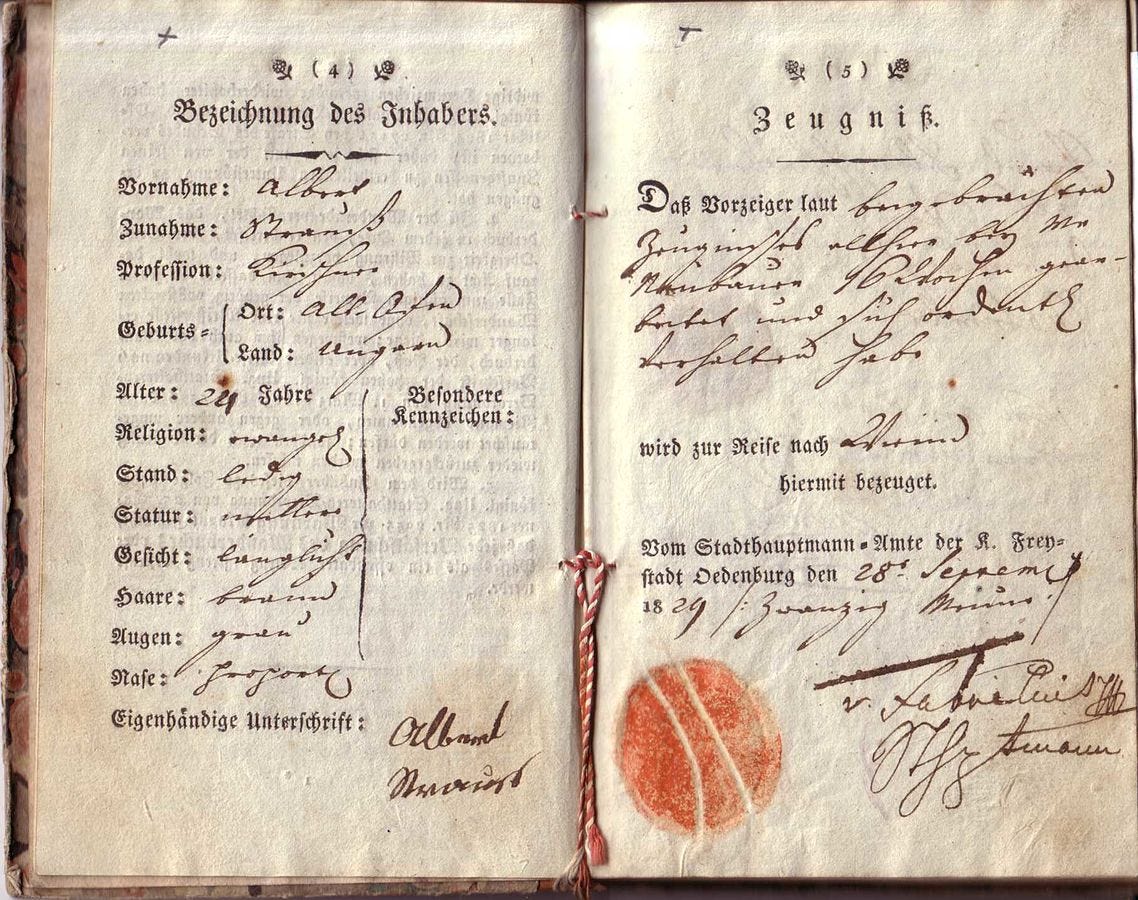 ( 4 )
Bezeichnung des Inhabers.
Vornahme: Albert
Zunahme: Strauß
Profession: Kirschner
Geburts=
Ort: Alt-Ofen
Land: Ungarn
Alter: 24 Jahre
Besondere
Kennzeichen:
Religion: evangel
Stand: ledig
Statur: mittlere
Gesicht: länglicht
Haare: braun
Augen: grau
Nase: proport
Eigenhändige Unterschrift:
Albert
Strauß
( 5 )
Zeugniß.
Daß Vorzeiger laut beygebrachten
Zeugnisses allhier bey
Neubauer 16 Wochen gear-
beitet und sich ordentl
verhalten habe
wird zur Reise nach Wien
hiermit bezeuget.
Vom Stadthauptmann=Amte der K. Frey=
stadt Oedenburg den 28t Septem
1829 /: Zwanzig Neun :/
v. Fabricius
Sthptmann